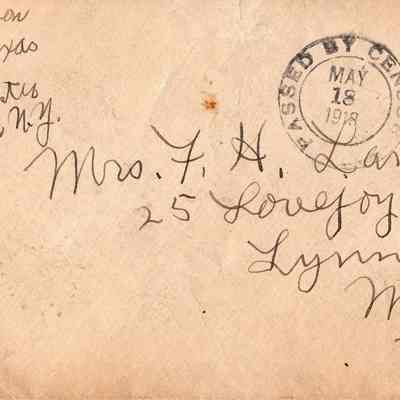 on
xas
N.Y.
PASSED BY CENSO
MAY
18
1918
Mrs. F. H. Lar
25 Lovejoy
Lynn
M